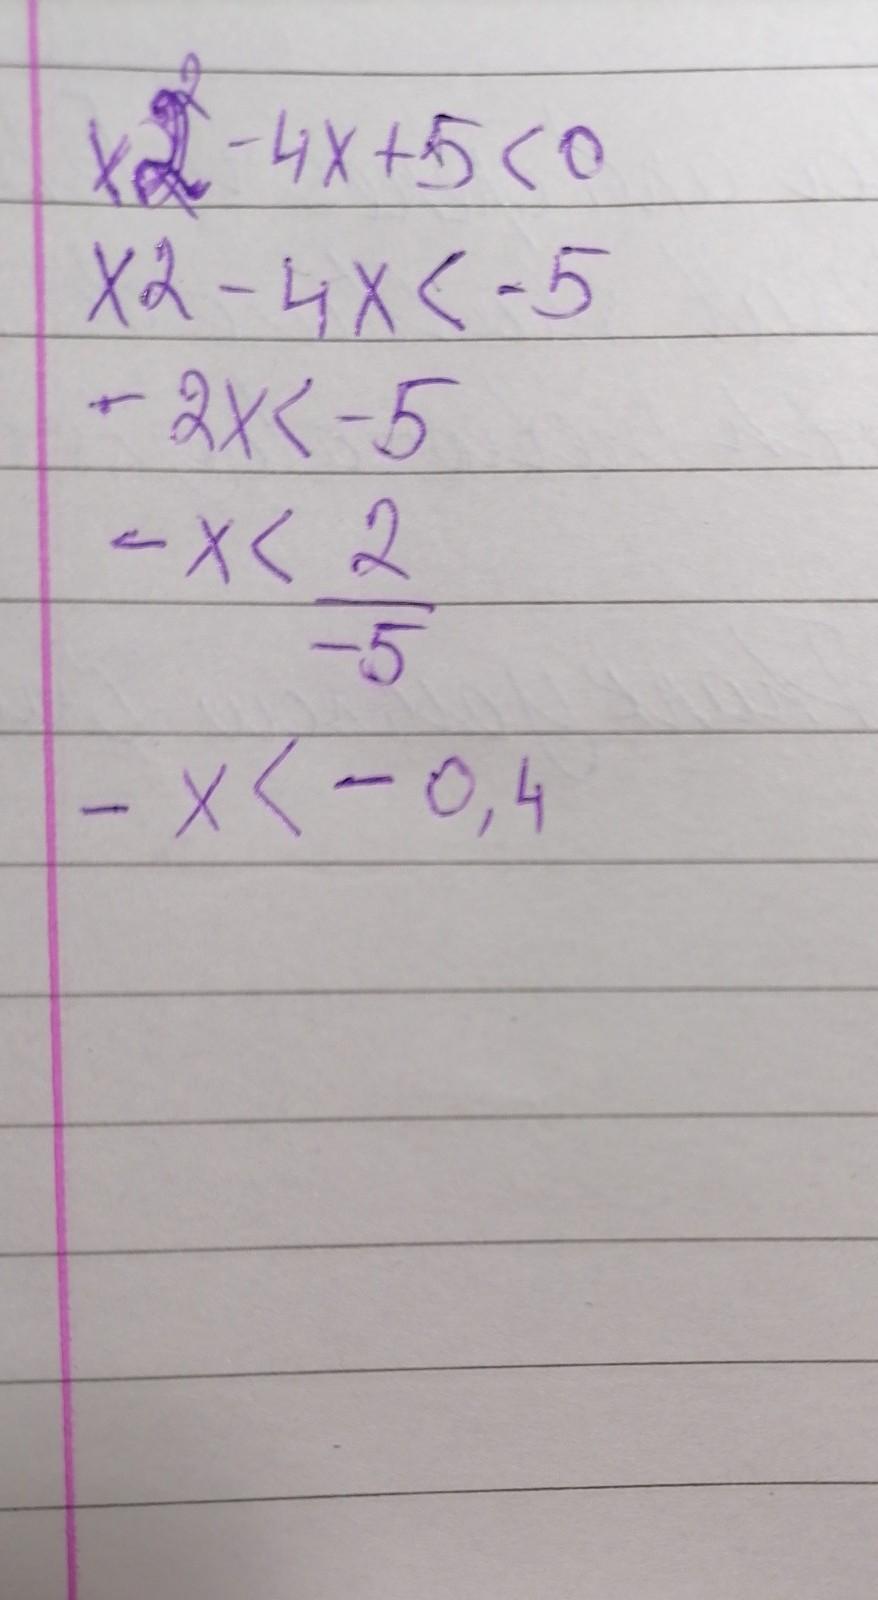 x2² - 4x + 5 < 0
x2 - 4x < - 5
- 2x < - 5
- x < 2
-5
- x < - 0,4